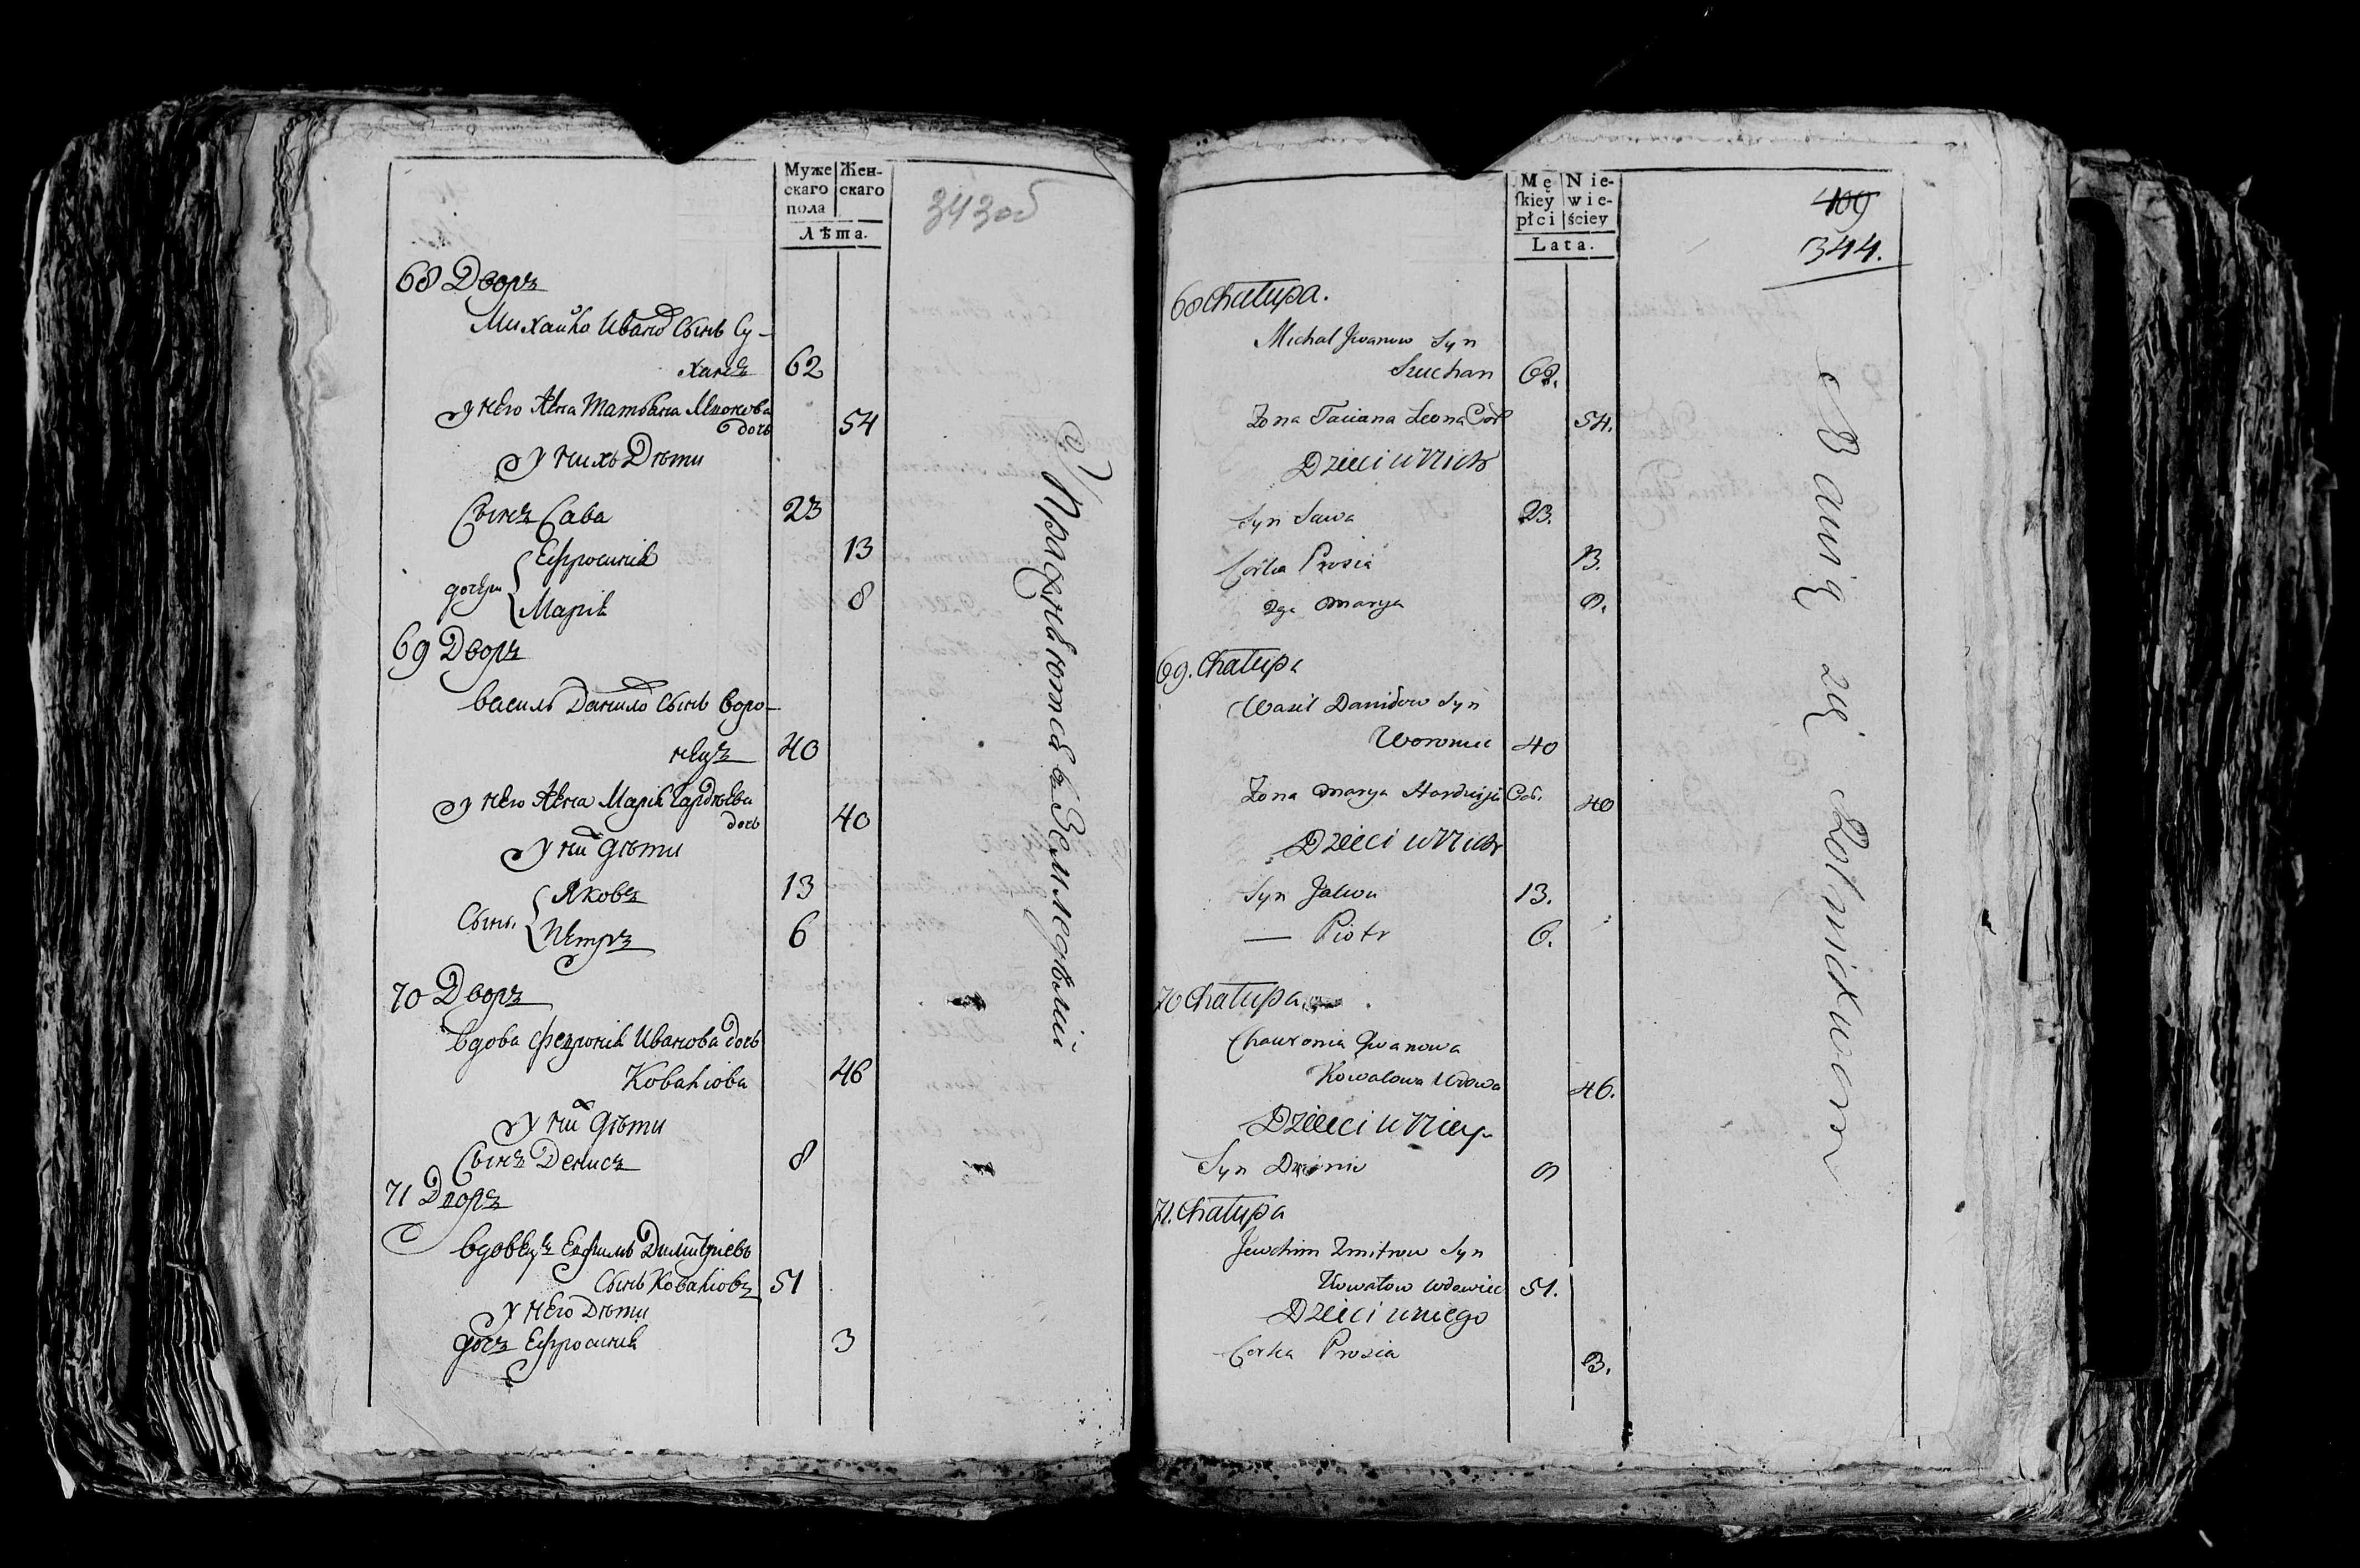 Муже
скаго
пола
Жен-
скаго
Лѣта.
343 об
68 Дворъ
Михайко Иванов Сынъ Су-
ханъ 62
у него жена Татьяна Леонова
дочь 54
у нихъ Дѣти
Сынъ Сава 23
дочери Ефросинья 13
Марья 8
69 Дворъ
Василь Данилов Сынъ Воро-
нецъ 40
у него жена Марья
дочь 40
у них дѣти
Сыны Яковъ 13
Петръ 6
70 Дворъ
вдова Февронья Иванова дочь
Ковальова 46
у ней дѣти
Сынъ Денисъ 8
71 Дворъ
вдовецъ Ефимъ Димитріевъ
Сынъ Ковальовъ 51
у него Дѣти
дочь Ефросинья 3
Упражняются в Земледѣлій
Mę
ſkiey
płci
Nie-
wie-
ściey
Lata.
409
344.
68 Chałupa.
Michał Jwanow Syn
Suchan 62.
Zona Taciana Leona Cor 54.
Dzieci u Nich
Syn Sawa 23.
Corka Prosia 13.
2ga Marya 8.
69. Chałupa
Wasil Daniłow Syn
Woroniec 40
Zona Marya Cor. 40
Dzieci u Nich
Syn Jakow 13.
— Piotr 6.
70 Chałupa
Chawronia Jwanowa
Kowalowa Wdowa 46.
Dzieci u Niey
Syn 8
71. Chałupa
Jewchim Zmitrow Syn
Kowalow wdowiec 51.
Dzieci u niego
Corka Prosia 3.
Bawią się Rolnictwem